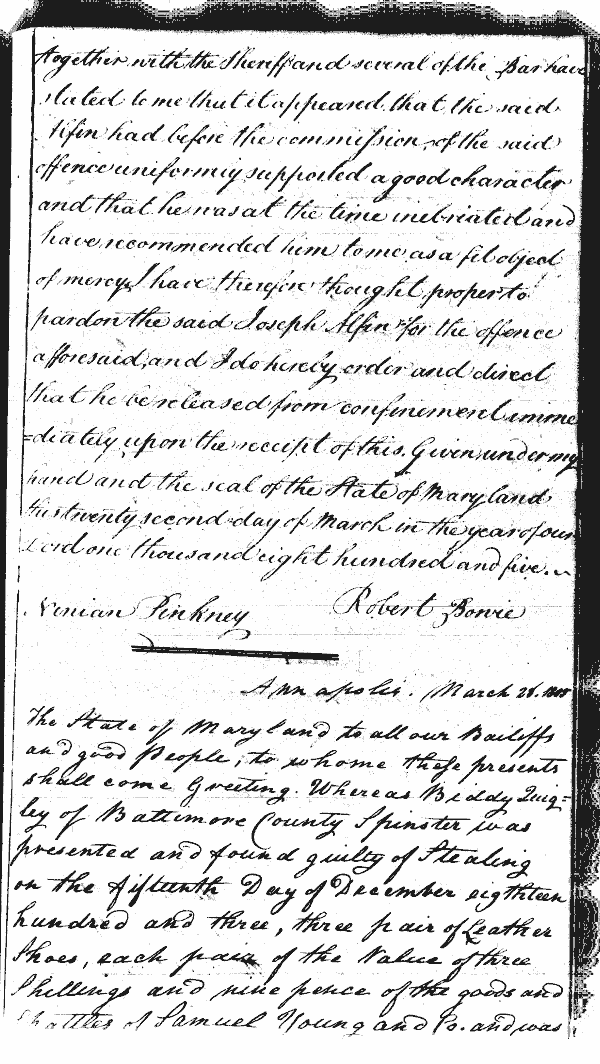 together with the Sheriff and several of the Bar have
stated to me that it appeared that the said
Alfin had before the commission of the said
offence uniformly supported a good character
and that he was at the time inebriated and
have recommended him to me as a fit object
of mercy, I have therefore thought proper to
pardon the said Joseph Alfin for the offence
afforesaid, and I do hereby order and direct
that he be released from confinement imme
=diately upon the receipt of this. Given under my
hand and the seal of the State of Maryland
this twenty second day of March in the year of our
Lord one thousand eight hundred and five.
Ninian Pinkney Robert Bowie
Annapolis. March 28. 1805
The State of Maryland to all our Bailiffs
and good People, to whome these presents
shall come Greeting. Whereas Biddy Quig=
ley of Baltimore County Spinster was
presented and found guilty of Stealing
on the fifteenth Day of December eighteen
hundred and three, three pair of Leather
Shoes, each pair of the Value of three
Shillings and nine pence of the goods and
Chattles of Samuel Young and Co. and was